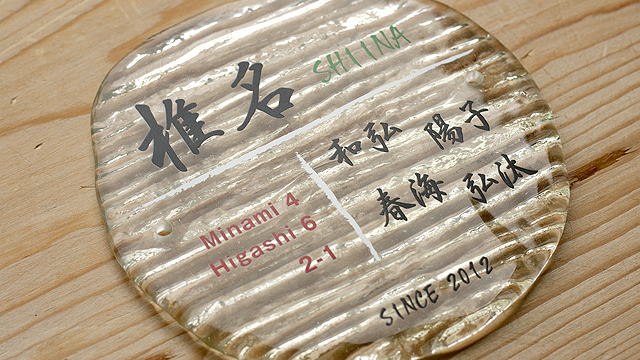 椎名 SHIINA
和弘 陽子
春海 弘汰
Minami 4
Higashi 6
2-1
SINCE 2012